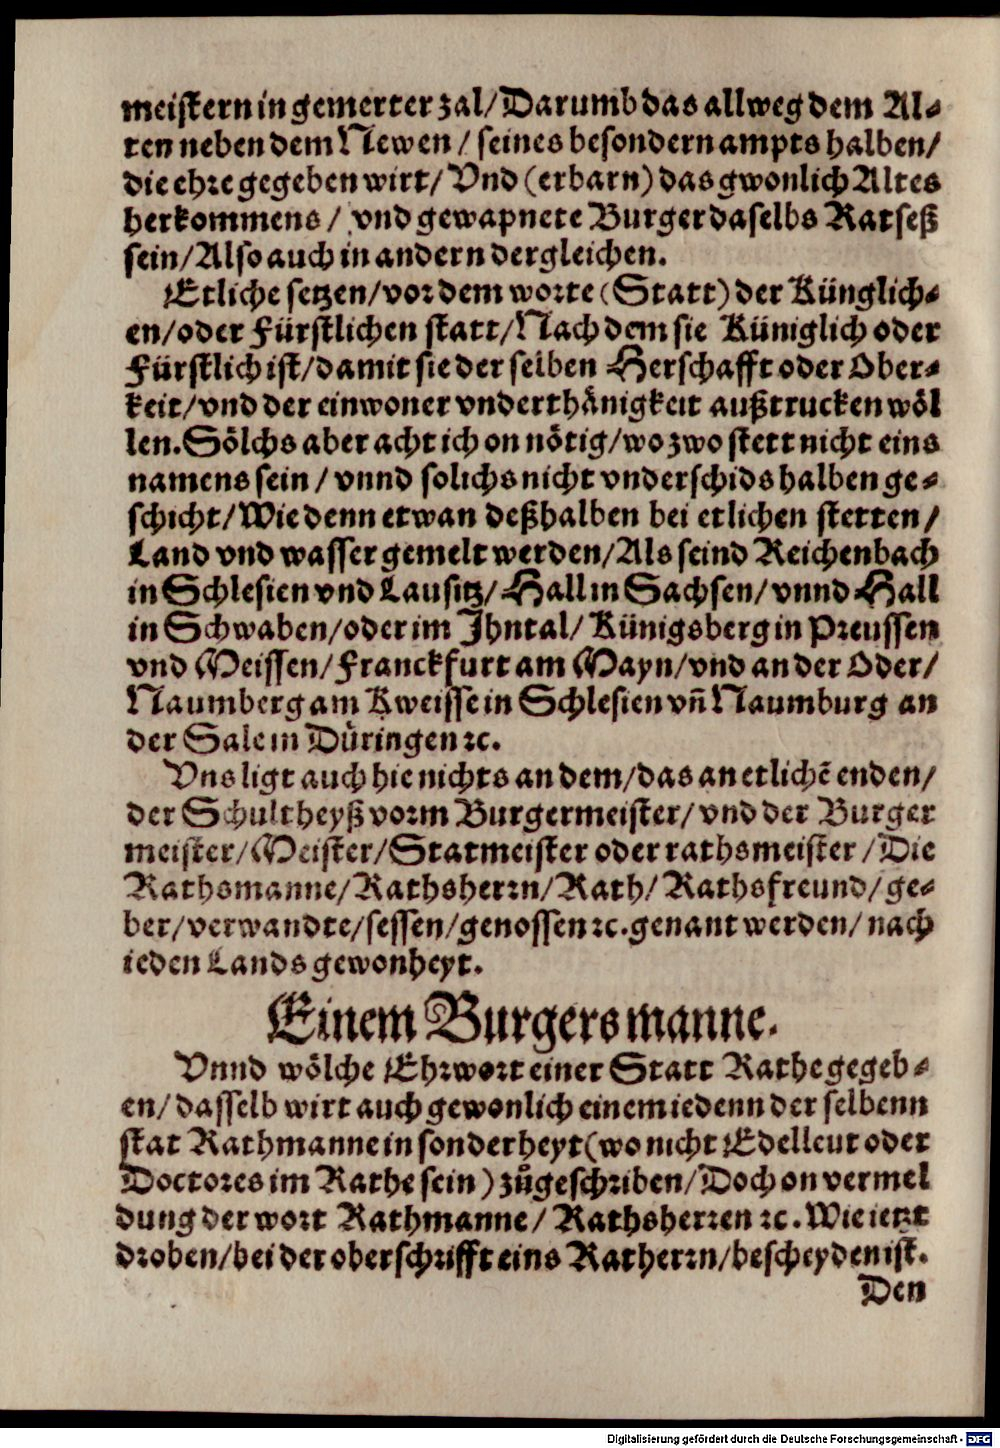 meistern in gemerter zal/Darumb das allweg dem Al-
ten neben dem Newen/ seines besondern ampts halben/
die ehre gegeben wirt/ Vnd (erbarn) das gwonlich Altes
herkommens/ vnd gewapnete Burger daselbs Ratseß
sein/Also auch in andern dergleichen.
Etliche setzen/vor dem worte (Statt) der Künglich-
en/oder Fürstlichen statt/Nach dem sie Küniglich oder
Fürstlich ist/damit sie der selben Herschafft oder Ober-
keit/vnd der einwoner vnderthänigkeit außtrucken wöl
len.Sölchs aber acht ich on nötig/wo zwo stett nicht eins
namens sein/ vnnd solichs nicht vnderschids halben ge-
schicht/Wie denn etwan deßhalben bei etlichen stetten/
Land vnd wasser gemelt werden/Als seind Reichenbach
in Schlesien vnd Lausitz/Hall in Sachsen/vnnd Hall
in Schwaben/oder im Ihntal/Künigsberg in Preussen
vnd Meissen/Franckfurt am Mayn/vnd an der Oder/
Naumberg am Kweisse in Schlesien vñ Naumburg an
der Sale in Düringen ꝛc.
Vns ligt auch hie nichts an dem/das an etlichē enden/
der Schultheyß vorm Burgermeister/vnd der Burger
meister/Meister/Statmeister oder rathsmeister/Die
Rathsmanne/Rathsherrn/Rath/Rathsfreund/ge-
ber/verwandte/sessen/genossen ꝛc.genant werden/nach
ieden Lands gewonheyt.
Einem Burgersmanne.
Vnnd wölche Ehrwort einer Statt Rathe gegeb-
en/dasselb wirt auch gewonlich einem iedenn der selbenn
stat Rathmanne in sonderheyt(wo nicht Edelleut oder
Doctores im Rathe sein)zůgeschriben/Doch on vermel
dung der wort Rathmanne/Rathsherren ꝛc.Wie ietzt
droben/bei der oberschrifft eins Ratherrn/bescheyden ist.
Den
Digitalisierung gefördert durch die Deutsche Forschungsgemeinschaft - DFG